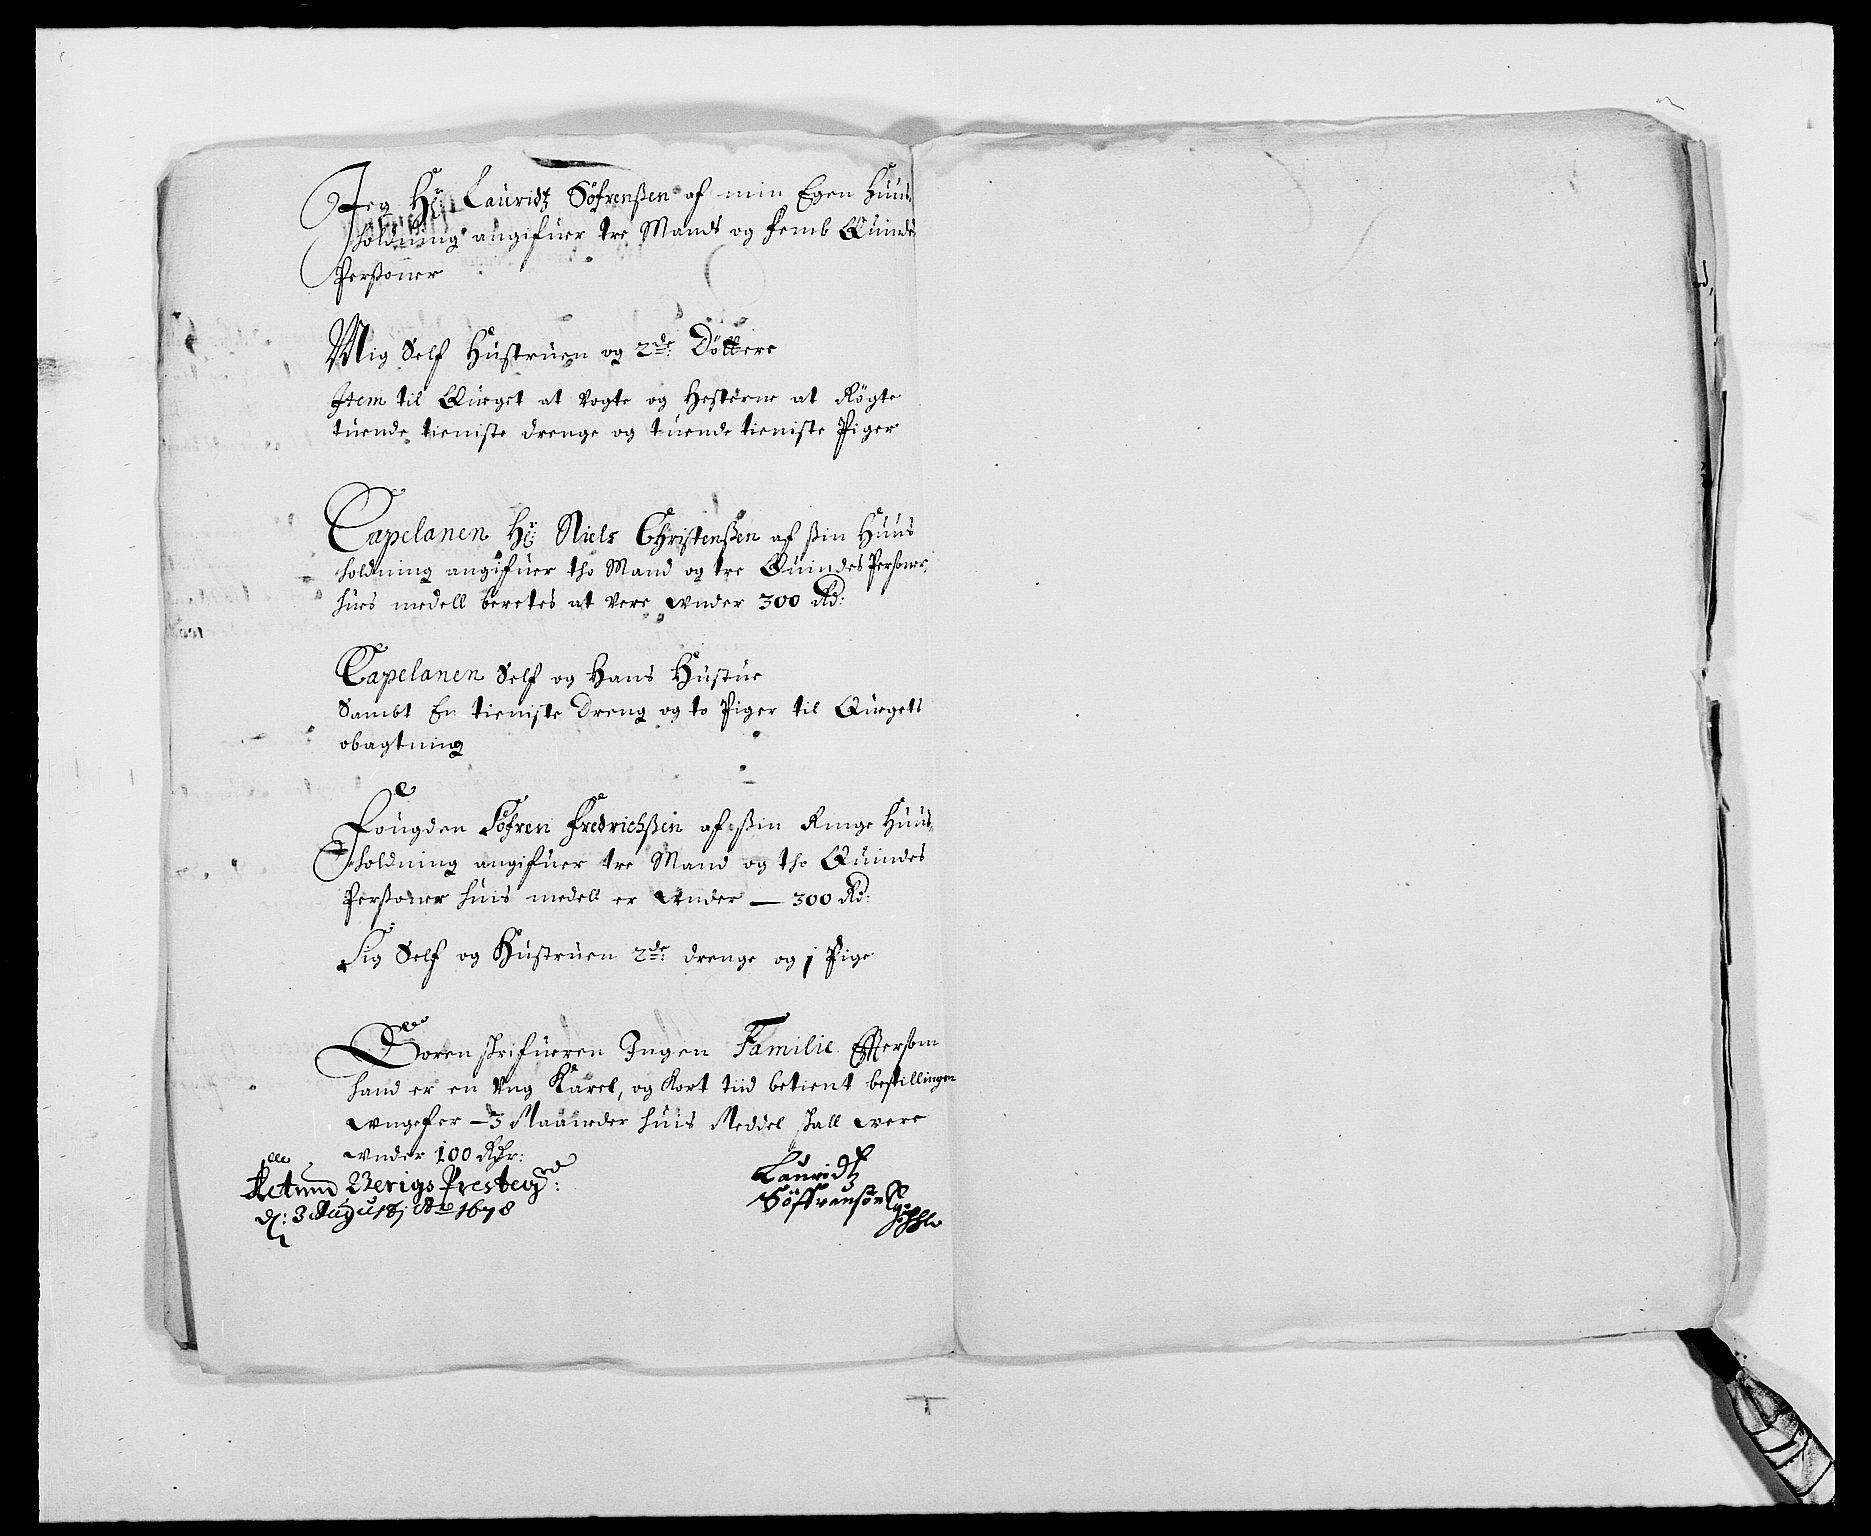 Jeg Hr: Lauridtz Söfrenßen af min Egen Huus,
holdning angifuer tre Mands og femb Quinde
Perßoner
Mig Self Hustruen og 2de: Döttere
Item til Qüeget at vogte og Hesterne at Rögte
tuende tieniste drenge og tuende tieniste Piger
Capelanen Hr: Niels Christenßen af ßin Huus
holdning angifuer tho Mand og tre Quindes Personer,
hues medell beretes at vere wnder 300 Rd:
Capelanen Self og Hans Hustue
Sambt En tieniste Dreng og to Piger til Qüegets
obagtning
Fougden Söfren Fredrichßen af ßin Ringe Huus,
holdning angifuer tre Mand og tho Quindes
Perßoner huis medell er wnder — 300 Rd:
Sig Self og Hustruen 2de: drenge og 1 Pige
Soren skrifueren Ingen Familie Effterson
hand er en vng Karel, og Kort tiid betient bestillingen
wngefer – 3 Maaneder huis Meddel skall were
wnder 100 Rdr:
Actum Berigs Presteg rd:
d: 3 Augustj Ao 1678
Lauridtz
Söffrensön